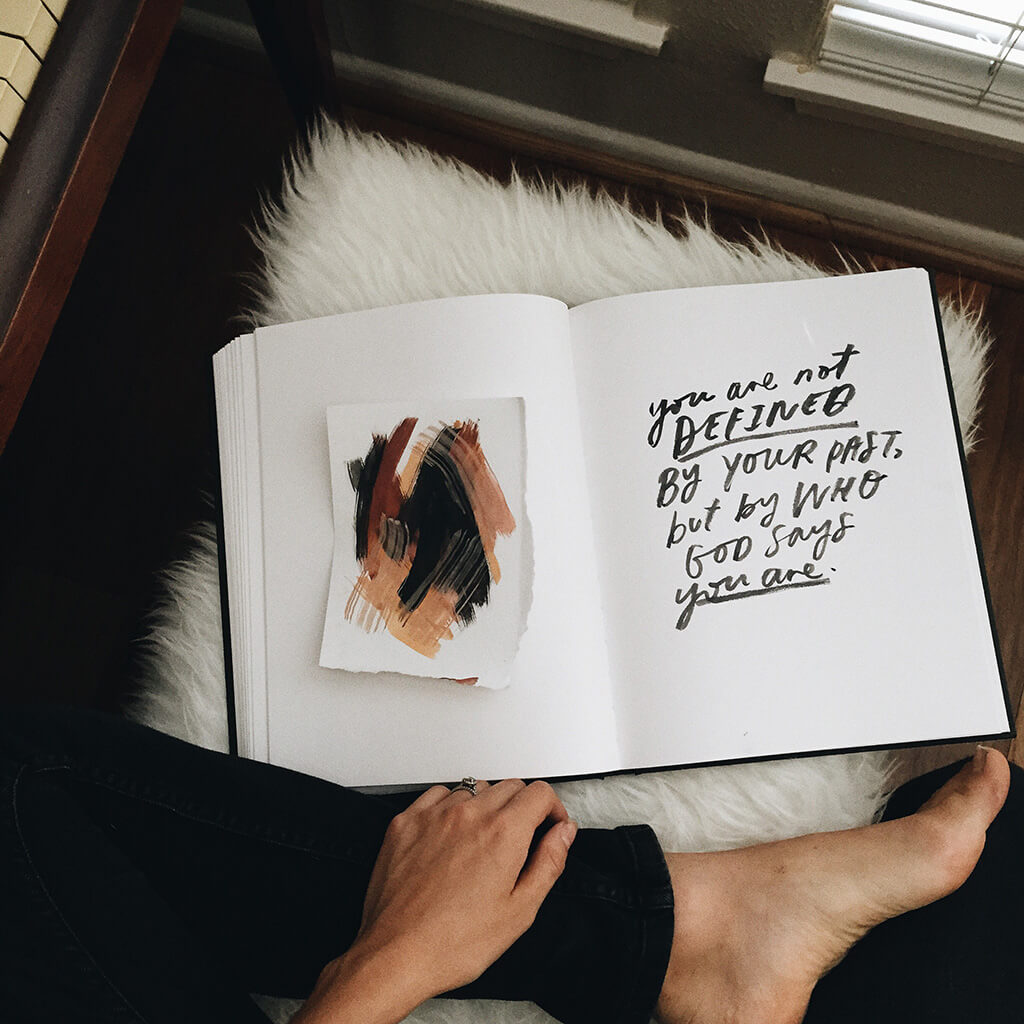 you are not
DEFINED
BY YOUR PAST,
but by WHO
GOD says
you are.